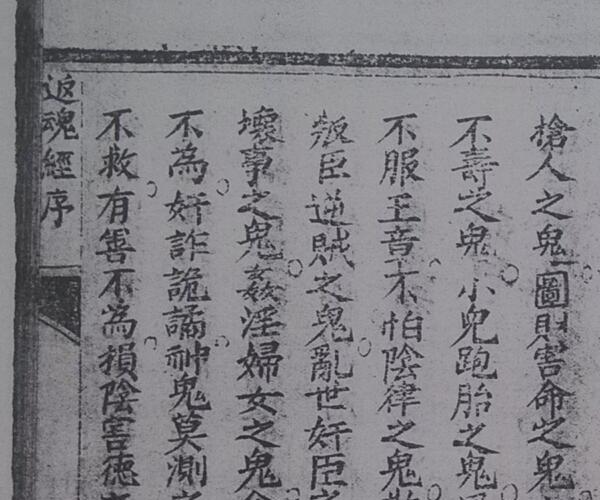 槍人之鬼圖財害命之鬼
不壽之鬼小兒跑胎之鬼
不服王音不怕陰律之鬼
叛臣逆賊之鬼亂世奸臣
壞事之鬼姦淫婦女之鬼
不為奸詐詭譎神鬼莫測
不救有善不為損陰害德
返魂經序